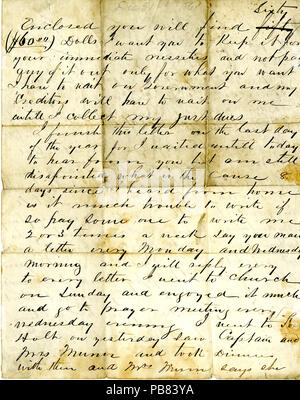 Sixty
Enclosed you will find fifty
($60 00) Dolls I want you to Keep it for
your immediate and not pay
any of it out only for what you want
I have to wait on Government and my
Creditors will have to wait on me
untill I collect my just dues
I finish this letter on the last day
of the year for I waited untill today
to hear from you but am still
disapointed what is the Cause 8
days since I heard from home
is it much trouble to write if
so pay some one to write me
2 or 3 times a week say you mail
a letter every Monday and Wednesday
morning and I will reply
to every letter I went to Church
on Sunday and engoyed it much
and go to prayer meeting every
wednesday evening I went to
Holt on yesterday saw Captain and
Mrs Munn and took Dinner
with them and Mrs Munn says she
alamy
Image ID: PB83YA
www.alamy.com